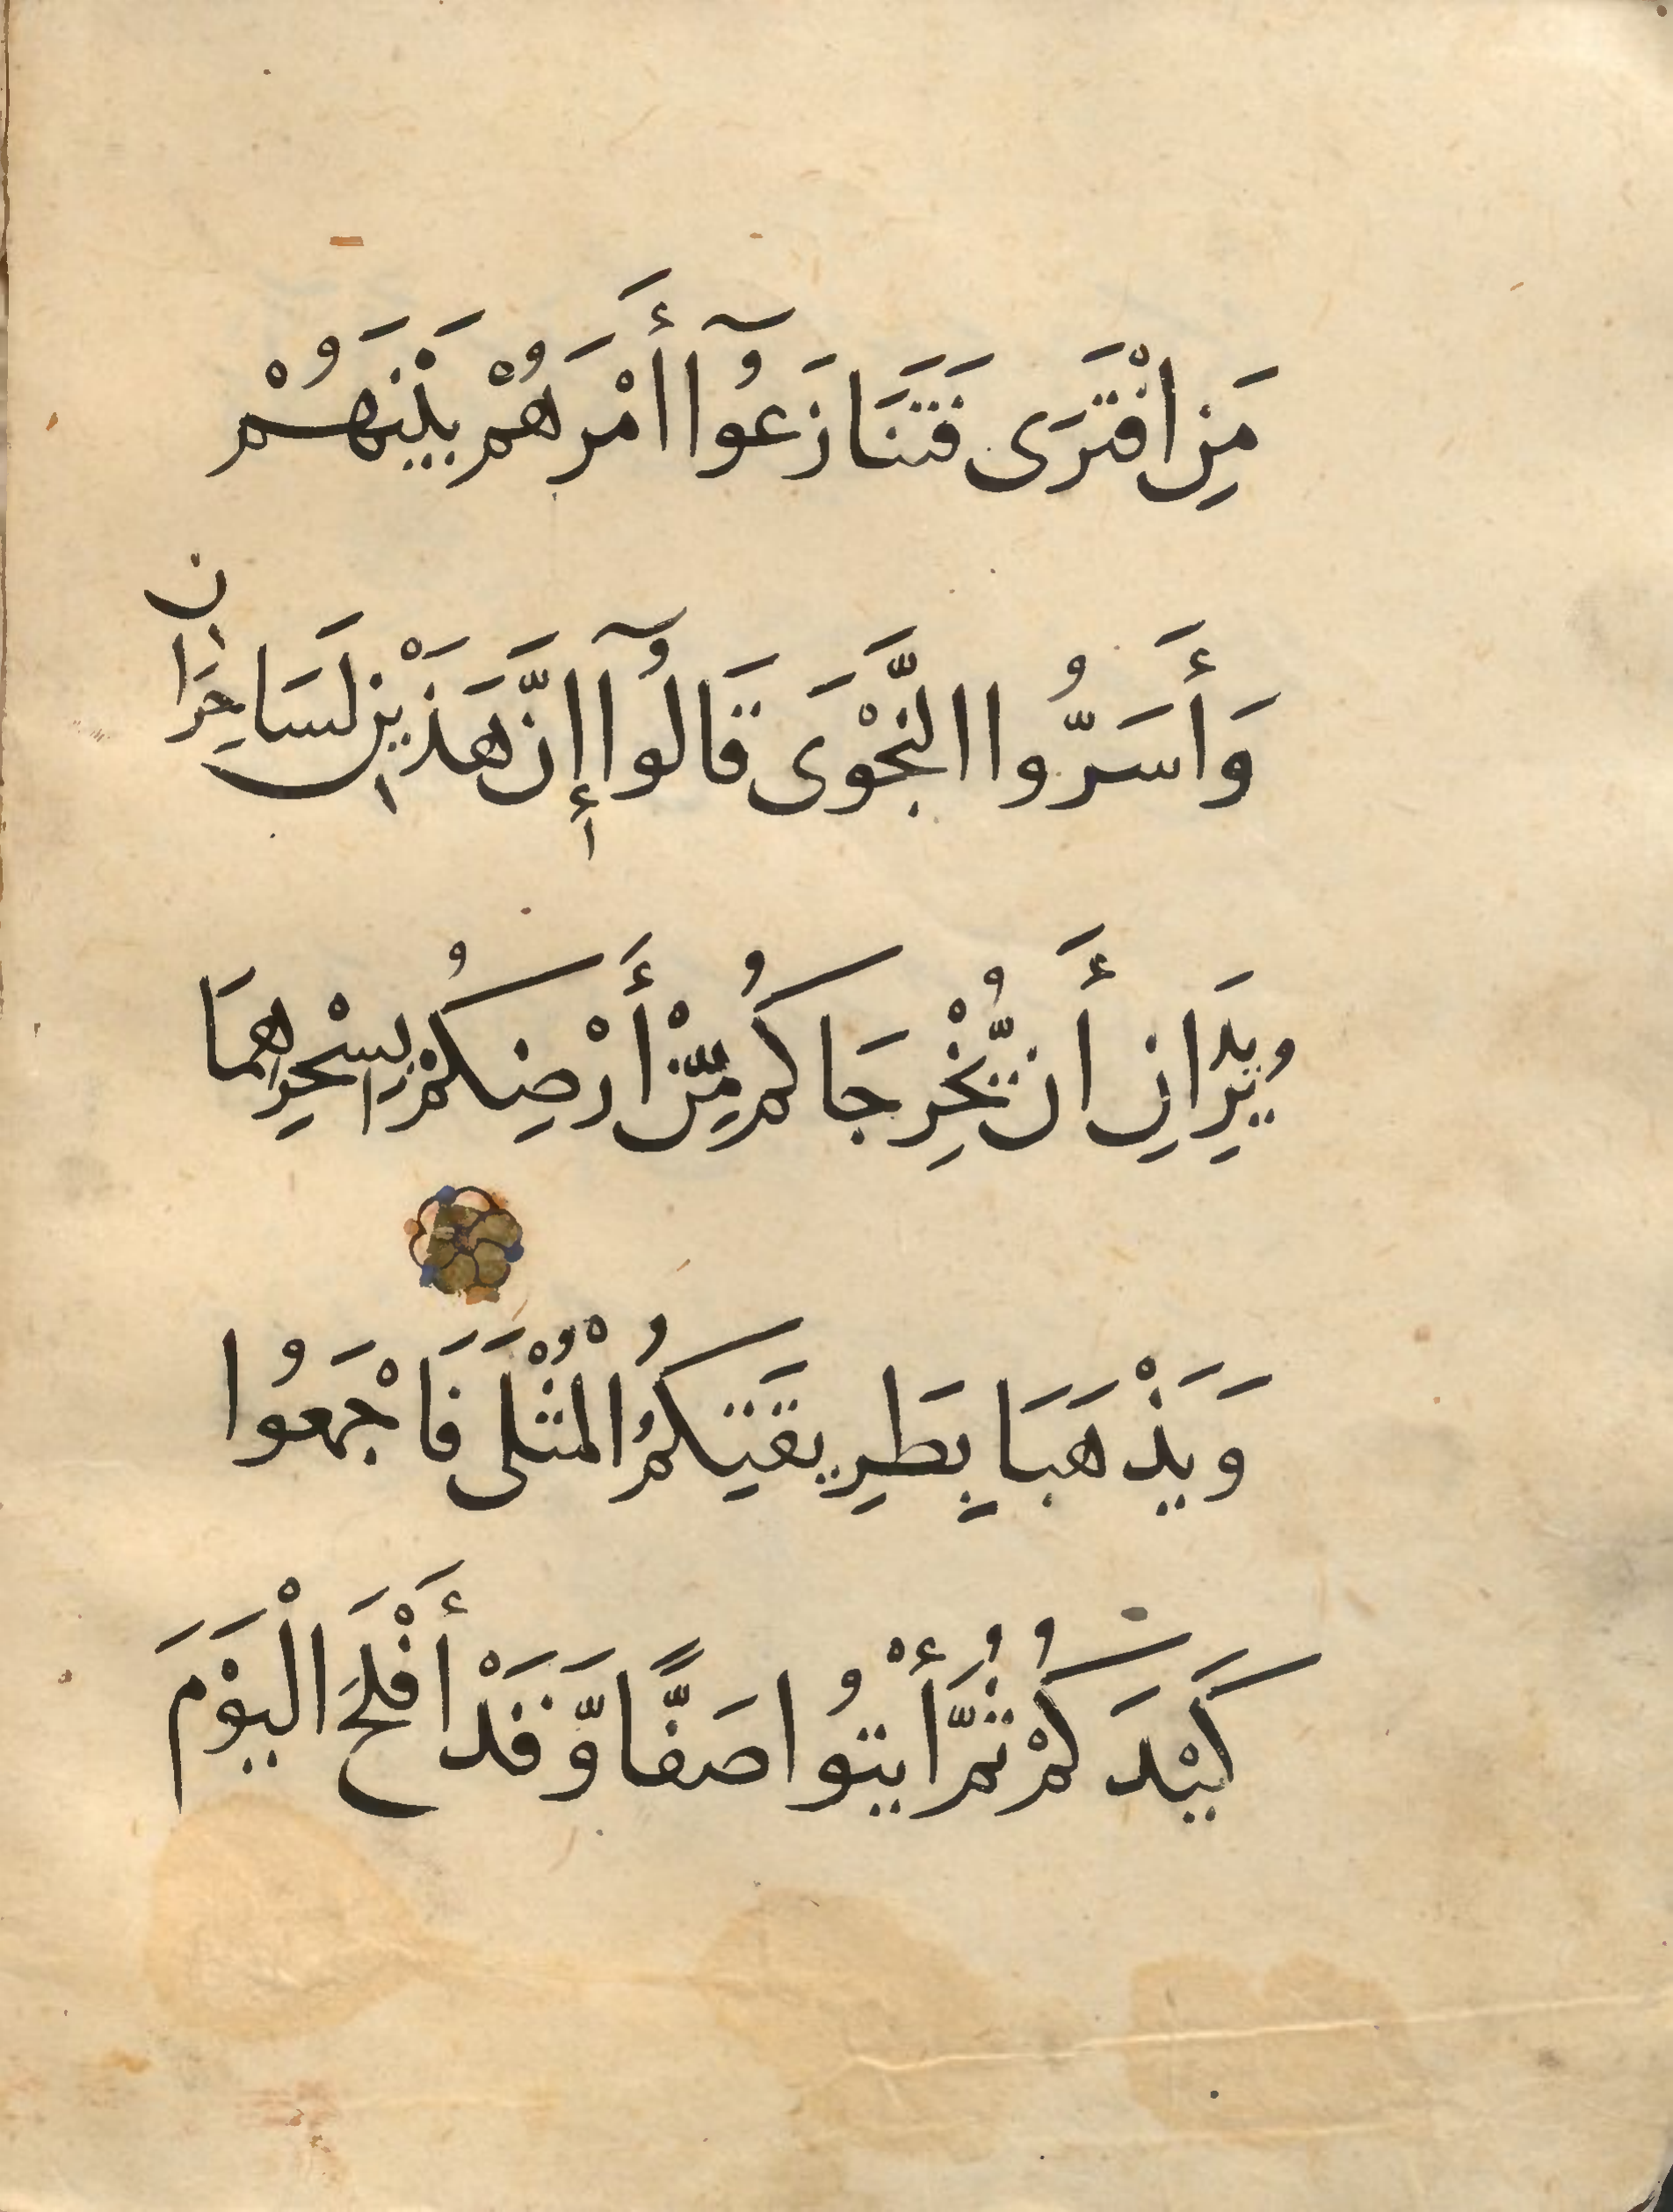 مَنِ افْتَرَى فَتَنَازَعُوآ أَمْرَهُمْ بَيْنَهُمْ
وَأَسَرُّوا النَّجْوَى قَالُوآ إِنَّ هَذَيْنِ لَسَاحِرَانِ
يُرِيدَانِ أَن يُّخْرِجَاكُم مِّنْ أَرْضِكُمْ بِسِحْرِهِمَا
وَيَذْهَبَا بِطَرِيقَتِكُمُ الْمُثْلَى فَاجْمَعُوا
كَيْدَكُمْ ثُمَّ أْيتُوا صَفًّا وَّقَدْ أَفْلَحَ الْيَوْمَ